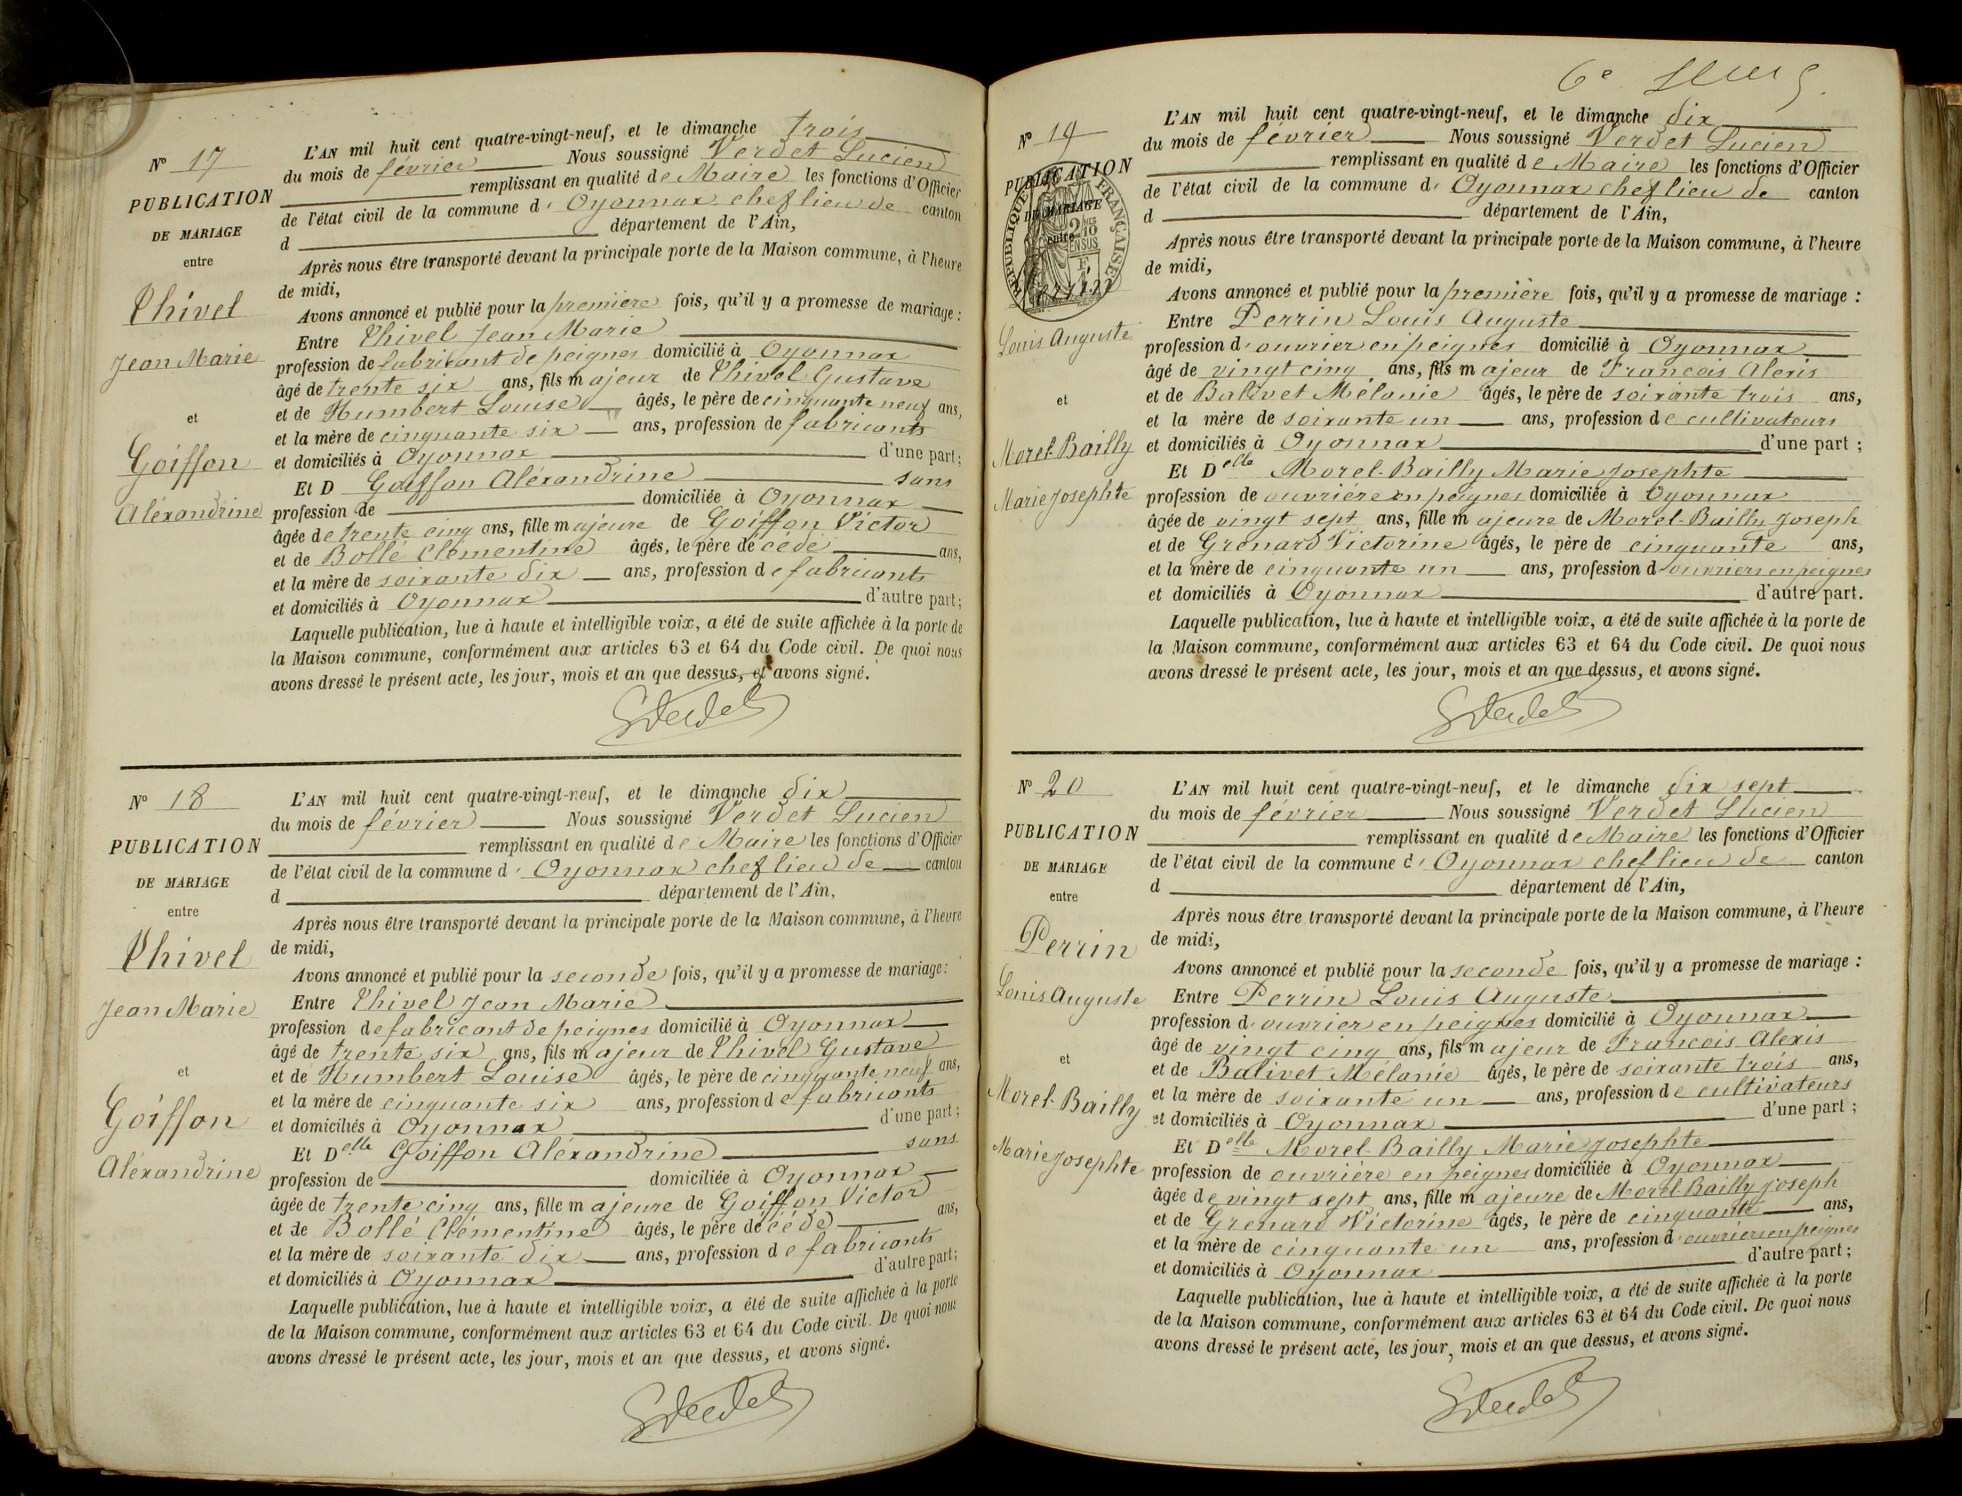 N° 17
PUBLICATION
DE MARIAGE
entre
Thivel
Jean Marie
et
Goiffon
Aléxandrine
L'AN mil huit cent quatre-vingt-neuf, et le dimanche trois
du mois de février Nous soussigné Verdet Lucien
remplissant en qualité de Maire les fonctions d'Officier
de l'état civil de la commune d' Oyonnax chef lieu de canton
d département de l'Ain,
Après nous être transporté devant la principale porte de la Maison commune, à l'heure
de midi,
Avons annoncé et publié pour la première fois, qu'il y a promesse de mariage :
Entre Thivel Jean Marie
profession de fabricant de peignes domicilié à Oyonnax
âgé de trente six ans, fils majeur de Thivel Gustave
et de Humbert Louise âgés, le père de cinquante neuf ans,
et la mère de cinquante six ans, profession de fabricants
et domiciliés à Oyonnax d'une part;
Et D Goiffon Aléxandrine sans
profession de domiciliée à Oyonnax
âgée de trente cinq ans, fille majeure de Goiffon Victor
et de Bollé Clémentine âgés, le père décédé ans,
et la mère de soixante dix ans, profession de fabricants
et domiciliés à Oyonnax d'autre part;
Laquelle publication, lue à haute et intelligible voix, a été de suite affichée à la porte de
la Maison commune, conformément aux articles 63 et 64 du Code civil. De quoi nous
avons dressé le présent acte, les jour, mois et an que dessus, et avons signé.
N° 18
PUBLICATION
DE MARIAGE
entre
Thivel
Jean Marie
et
Goiffon
Aléxandrine
L'AN mil huit cent quatre-vingt-neuf, et le dimanche dix
du mois de février Nous soussigné Verdet Lucien
remplissant en qualité de Maire les fonctions d'Officier
de l'état civil de la commune d' Oyonnax chef lieu de canton
d département de l'Ain,
Après nous être transporté devant la principale porte de la Maison commune, à l'heure
de midi,
Avons annoncé et publié pour la seconde fois, qu'il y a promesse de mariage:
Entre Thivel Jean Marie
profession de fabricant de peignes domicilié à Oyonnax
âgé de trente six ans, fils majeur de Thivel Gustave
et de Humbert Louise âgés, le père de cinquante neuf ans,
et la mère de cinquante six ans, profession de fabricants
et domiciliés à Oyonnax d'une part;
Et Delle Goiffon Aléxandrine sans
profession de domiciliée à Oyonnax
âgée de trente cinq ans, fille majeure de Goiffon Victor
et de Bollé Clémentine âgés, le père décédé ans,
et la mère de soixante dix ans, profession de fabricants
et domiciliés à Oyonnax d'autre part;
Laquelle publication, lue à haute et intelligible voix, a été de suite affichée à la porte
de la Maison commune, conformément aux articles 63 et 64 du Code civil. De quoi nous
avons dressé le présent acte, les jour, mois et an que dessus, et avons signé.
6e
N° 19
PUBLICATION
DE MARIAGE
entre
RÉPUBLIQUE FRANÇAISE
Louis Auguste
et
Morel-Bailly
Marie Josephte
L'AN mil huit cent quatre-vingt-neuf, et le dimanche dix
du mois de février Nous soussigné Verdet Lucien
remplissant en qualité de Maire les fonctions d'Officier
de l'état civil de la commune d' Oyonnax chef lieu de canton
d département de l'Ain,
Après nous être transporté devant la principale porte de la Maison commune, à l'heure
de midi,
Avons annoncé et publié pour la première fois, qu'il y a promesse de mariage :
Entre Perrin Louis Auguste
profession d'ouvrier en peignes domicilié à Oyonnax
âgé de vingt cinq ans, fils majeur de François Alexis
et de Balivet Mélanie âgés, le père de soixante trois ans,
et la mère de soixante un ans, profession de cultivateurs
et domiciliés à Oyonnax d'une part ;
Et Delle Morel-Bailly Marie Josephte
profession de ouvrière en peignes domiciliée à Oyonnax
âgée de vingt sept ans, fille majeure de Morel-Bailly Joseph
et de Grenard Victorine âgés, le père de cinquante ans,
et la mère de cinquante un ans, profession d'ouvriers en peignes
et domiciliés à Oyonnax d'autre part.
Laquelle publication, lue à haute et intelligible voix, a été de suite affichée à la porte de
la Maison commune, conformément aux articles 63 et 64 du Code civil. De quoi nous
avons dressé le présent acte, les jour, mois et an que dessus, et avons signé.
N° 20
PUBLICATION
DE MARIAGE
entre
Perrin
Louis Auguste
et
Morel-Bailly
Marie Josephte
L'AN mil huit cent quatre-vingt-neuf, et le dimanche dix sept
du mois de février Nous soussigné Verdet Lucien
remplissant en qualité de Maire les fonctions d'Officier
de l'état civil de la commune d' Oyonnax chef lieu de canton
d département de l'Ain,
Après nous être transporté devant la principale porte de la Maison commune, à l'heure
de midi,
Avons annoncé et publié pour la seconde fois, qu'il y a promesse de mariage :
Entre Perrin Louis Auguste
profession d'ouvrier en peignes domicilié à Oyonnax
âgé de vingt cinq ans, fils majeur de François Alexis
et de Balivet Mélanie âgés, le père de soixante trois ans,
et la mère de soixante un ans, profession de cultivateurs
et domiciliés à Oyonnax d'une part ;
Et Delle Morel-Bailly Marie Josephte
profession de ouvrière en peignes domiciliée à Oyonnax
âgée de vingt sept ans, fille majeure de Morel Bailly Joseph
et de Grenard Victorine âgés, le père de cinquante ans,
et la mère de cinquante un ans, profession d'ouvriers en peignes
et domiciliés à Oyonnax d'autre part ;
Laquelle publication, lue à haute et intelligible voix, a été de suite affichée à la porte
de la Maison commune, conformément aux articles 63 et 64 du Code civil. De quoi nous
avons dressé le présent acte, les jour, mois et an que dessus, et avons signé.